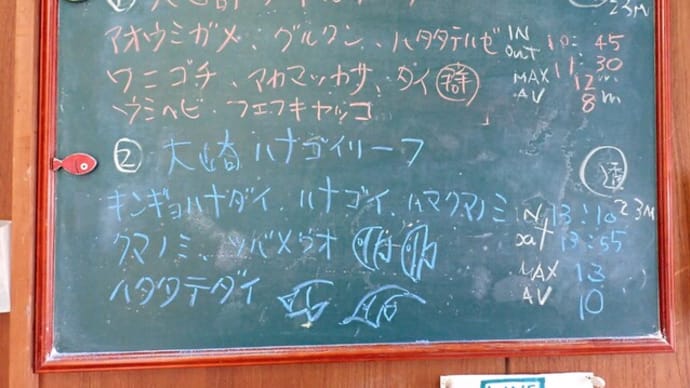 ① 大崎
23M
アオウミガメ、グルクン、ハタタテハゼ IN 10:45
out 11:30
ワニゴチ、アカマツカサ、ダイ 群 MAX 12m
ウミヘビ フエフキヤッコ AV 8m
② 大崎ハナゴイリーフ 透 23M
キンギョハナダイ、ハナゴイ、ハマクマノミ IN 13:10
クマノミ、ツバメウオ out 13:55
ハタタテダイ MAX 13
AV 10